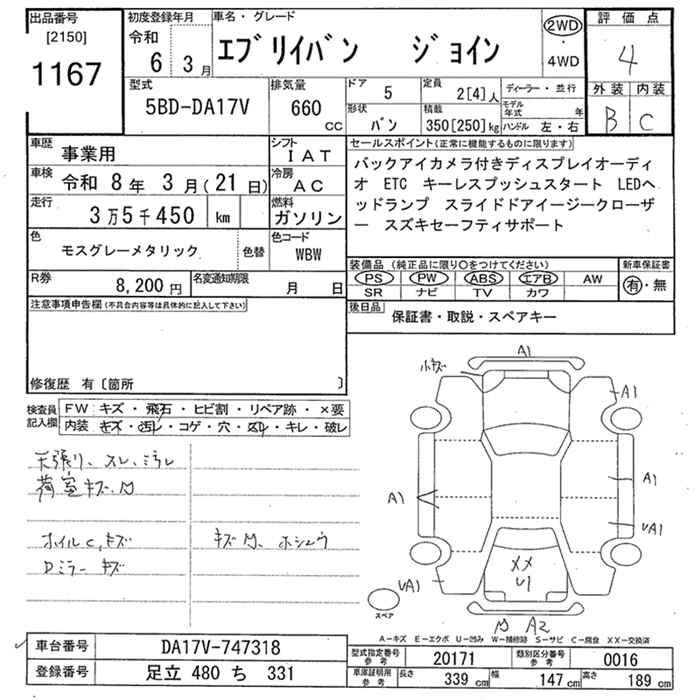 出品番号
[2150]
1167
初度登録年月
令和
6 3月
車名・グレード
エブリイバン ジョイン
2WD
・
4WD
評価点
4
外装 内装
B C
型式
5BD-DA17V
排気量
660
CC
ドア
5
定員
2[4]人
ディーラー・並行
形状
バン
積載
350[250]kg
モデル年式 年
ハンドル 左・右
車歴
事業用
シフト
IAT
車検
令和 8年 3月(21日)
冷房
AC
走行
3万5千450 km
燃料
ガソリン
色
モスグレーメタリック
色替
色コード
WBW
R券
8,200円
名変通知期限
月 日
セールスポイント(正常に機能するものに限ります)
バックアイカメラ付きディスプレイオーディ
オ ETC キーレスプッシュスタート LEDヘ
ッドランプ スライドドアイージークローザ
ー スズキセーフティサポート
装備品(純正品に限り〇をつけてください)
新車保証書
PS PW ABS エアB AW
SR ナビ TV カワ
有・無
後日品
保証書・取説・スペアキー
注意事項申告欄(不具合内容等は具体的に記入して下さい)
修復歴 有〔箇所 〕
検査員
記入欄
FW キズ・飛石・ヒビ割・リペア跡・×要
内装 キズ・汚レ・コゲ・穴・スレ・キレ・破レ
天張り、スレ、ヨゴレ
荷室キズ、凹
ホイルC、キズ
Dミラー キズ
キズ 凹、ホシュウ
小キズ
A1
A1
A1
A1
UA1
UA1
××
U1
凹 A2
スペア
A-キズ E-エクボ U-凹み W-補修跡 S-サビ C-腐食 XX-交換済
車台番号
DA17V-747318
登録番号
足立 480 ち 331
型式指定番号
参考
20171
類別区分番号
参考
0016
車庫証明用
参考
長さ
339 cm
幅
147 cm
高さ
189 cm